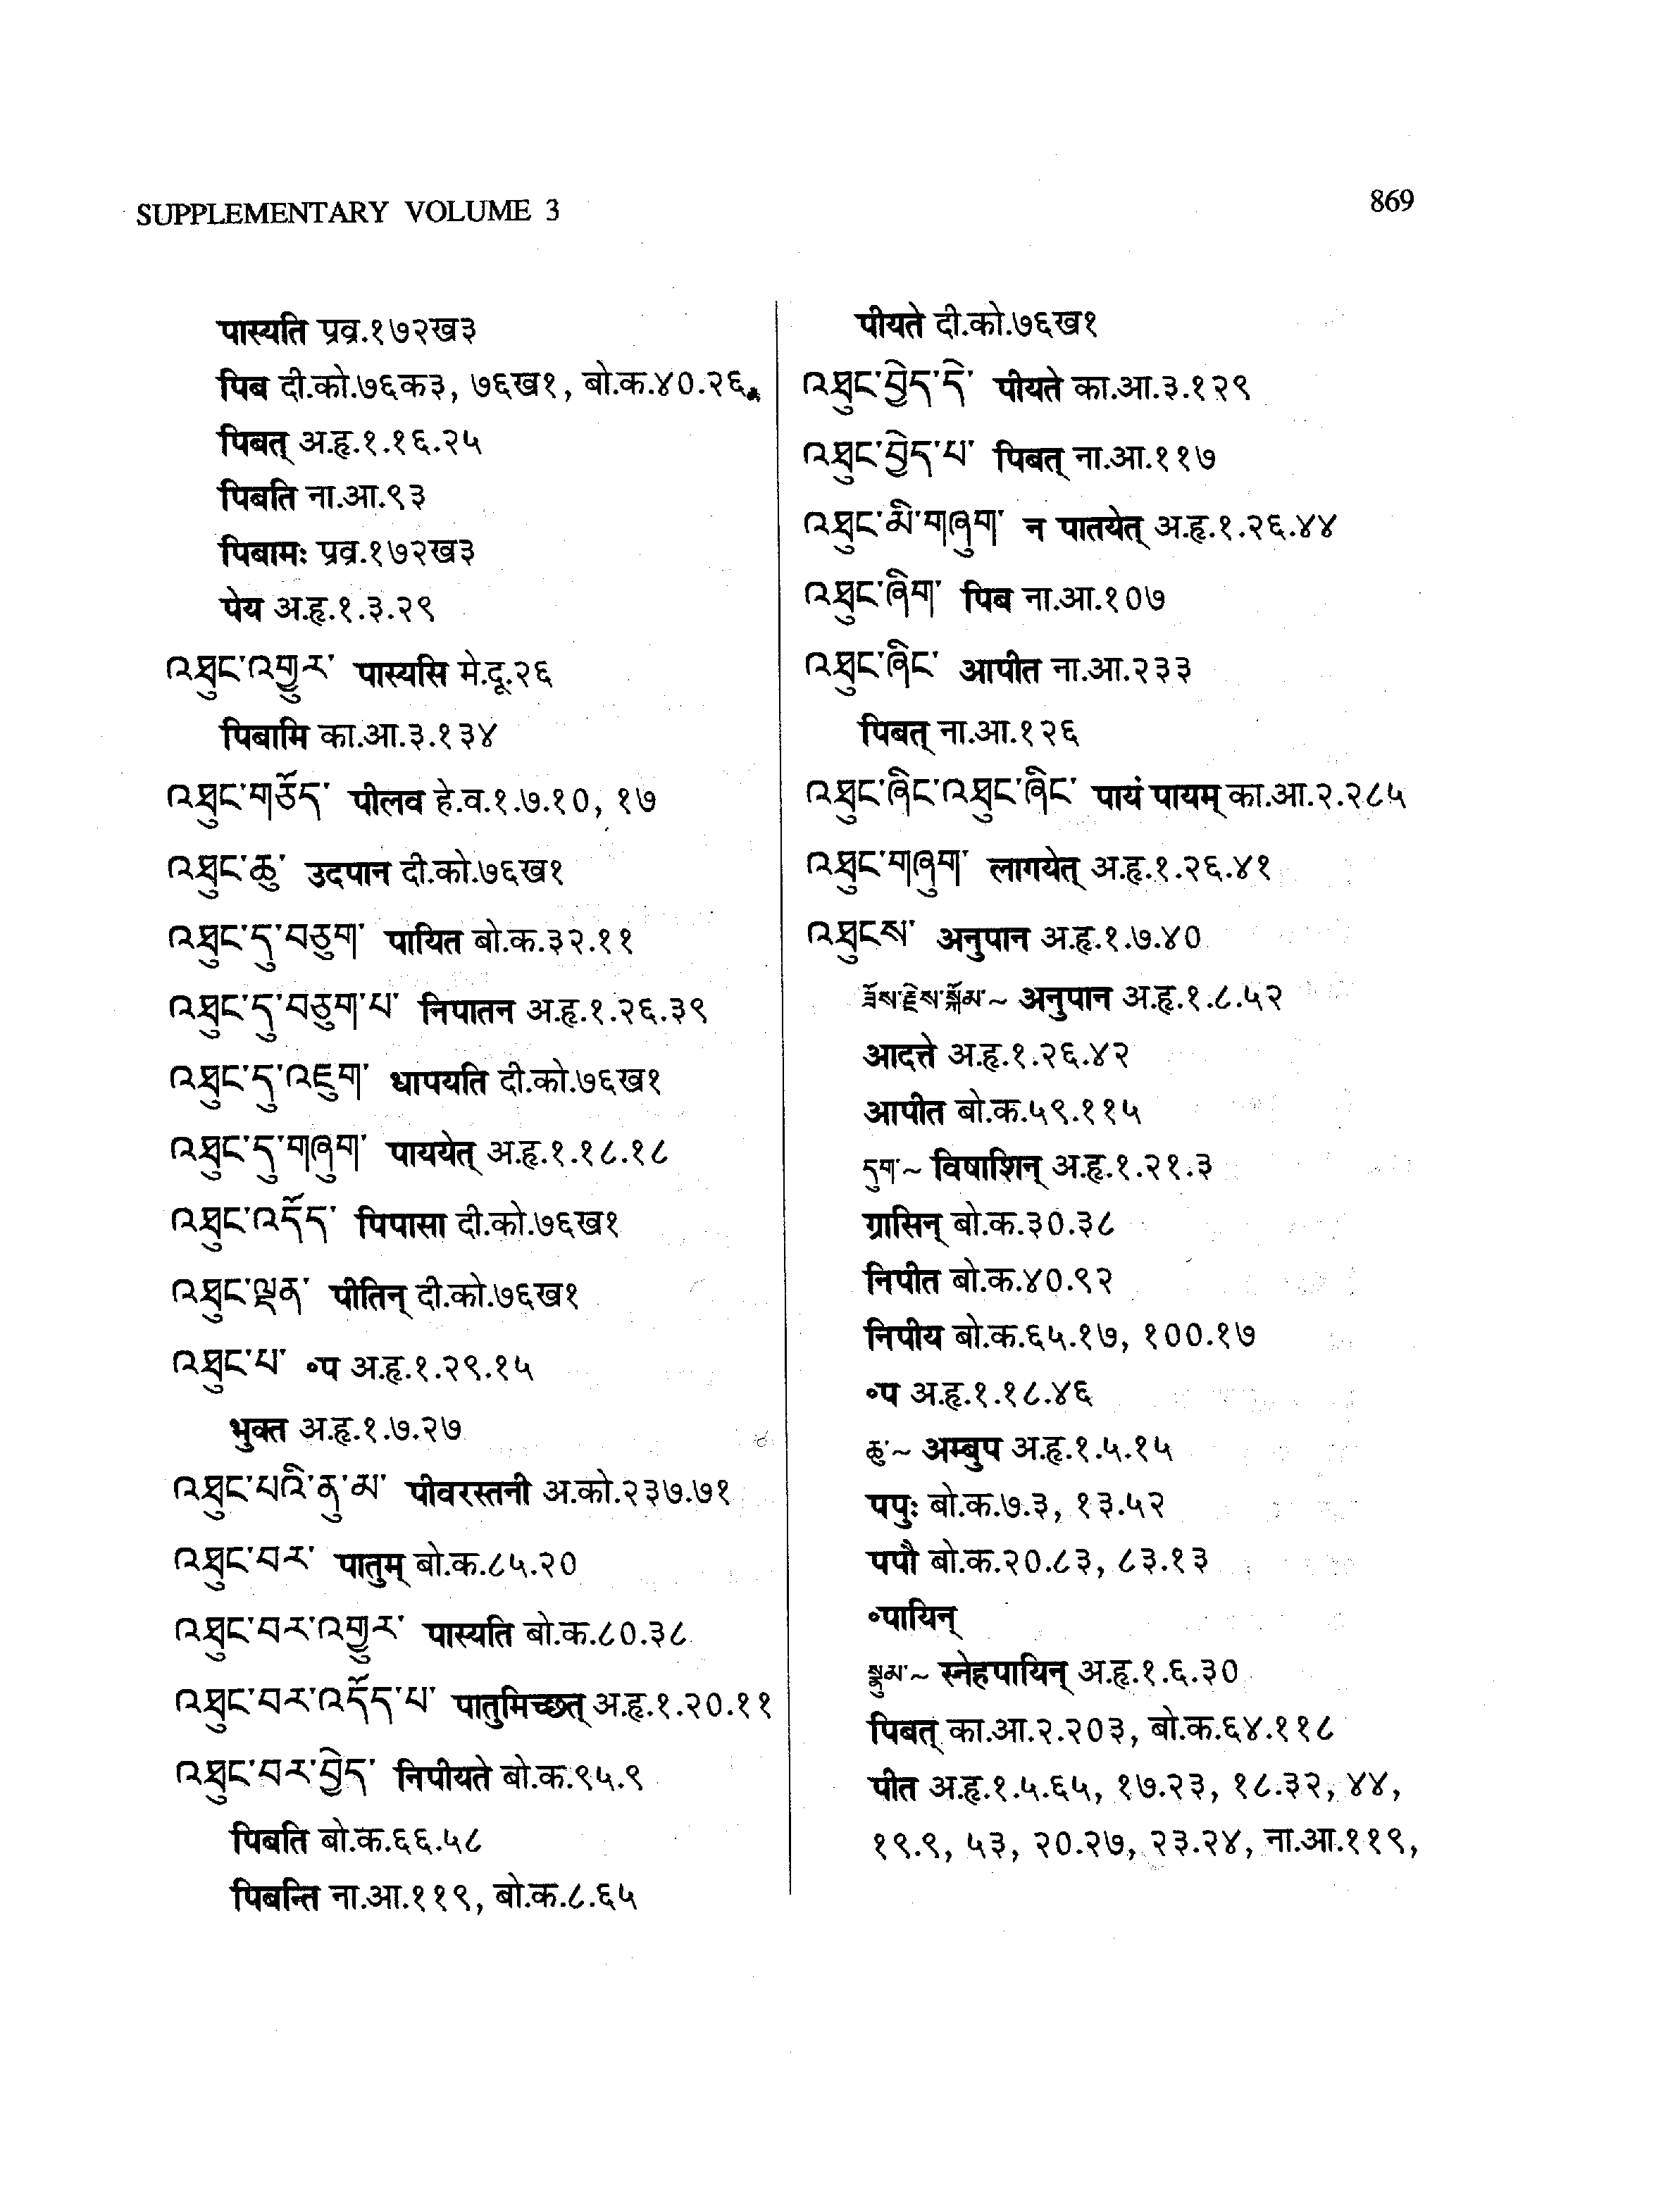 SUPPLEMENTARY VOLUME 3
869
पास्यति प्रव्र.१७२ख३
पिब दी.को.७६क३, ७६ख१, बो.क.४०.२६
पिबत् अ.हृ.१.१६.२५
पिबति ना.आ.९३
पिबामः प्रव्र.१७२ख३
पेय अ.हृ.१.३.२९
འཐུང་འགྱུར་ पास्यसि मे.दू.२६
पिबामि का.आ.३.१३४
འཐུང་གཅོད་ पीलव हे.व.१.७.१०, १७
འཐུང་ཆུ་ उदपान दी.को.७६ख१
འཐུང་དུ་བཅུག་ पायित बो.क.३२.११
འཐུང་དུ་བཅུག་པ་ निपातन अ.हृ.१.२६.३९
འཐུང་དུ་འཇུག་ धापयति दी.को.७६ख१
འཐུང་དུ་གཞུག་ पाययेत् अ.हृ.१.१८.१८
འཐུང་འདོད་ पिपासा दी.को.७६ख१
འཐུང་ལྡན་ पीतिन् दी.को.७६ख१
འཐུང་པ་ ॰प अ.हृ.१.२९.१५
भुक्त अ.हृ.१.७.२७
འཐུང་པའི་ནུ་མ་ पीवरस्तनी अ.को.२३७.७१
འཐུང་བར་ पातुम् बो.क.८५.२०
འཐུང་བར་འགྱུར་ पास्यति बो.क.८०.३८
འཐུང་བར་འདོད་པ་ पातुमिच्छत् अ.हृ.१.२०.११
འཐུང་བར་བྱེད་ निपीयते बो.क.९५.९
पिबति बो.क.६६.५८
पिबन्ति ना.आ.११९, बो.क.८.६५
पीयते दी.को.७६ख१
འཐུང་བྱེད་དེ་ पीयते का.आ.३.१२९
འཐུང་བྱེད་པ་ पिबत् ना.आ.११७
འཐུང་མི་གཞུག་ न पातयेत् अ.हृ.१.२६.४४
འཐུང་ཞིག་ पिब ना.आ.१०७
འཐུང་ཞིང་ आपीत ना.आ.२३३
पिबत् ना.आ.१२६
འཐུང་ཞིང་འཐུང་ཞིང་ पायं पायम् का.आ.२.२८५
འཐུང་གཞུག་ लागयेत् अ.हृ.१.२६.४१
འཐུངས་ अनुपान अ.हृ.१.७.४०
ཟོས་རྗེས་སྐོམ་~ अनुपान अ.हृ.१.८.५२
आदत्ते अ.हृ.१.२६.४२
आपीत बो.क.५९.११५
དུག་~ विषाशिन् अ.हृ.१.२१.३
ग्रासिन् बो.क.३०.३८
निपीत बो.क.४०.९२
निपीय बो.क.६५.१७, १००.१७
॰प अ.हृ.१.१८.४६
ཆུ་~ अम्बुप अ.हृ.१.५.१५
पपुः बो.क.७.३, १३.५२
पपौ बो.क.२०.८३, ८३.१३
॰पायिन्
སྣུམ་~ स्नेहपायिन् अ.हृ.१.६.३०
पिबत् का.आ.२.२०३, बो.क.६४.११८
पीत अ.हृ.१.५.६५, १७.२३, १८.३२, ४४,
१९.९, ५३, २०.२७, २३.२४, ना.आ.११९,